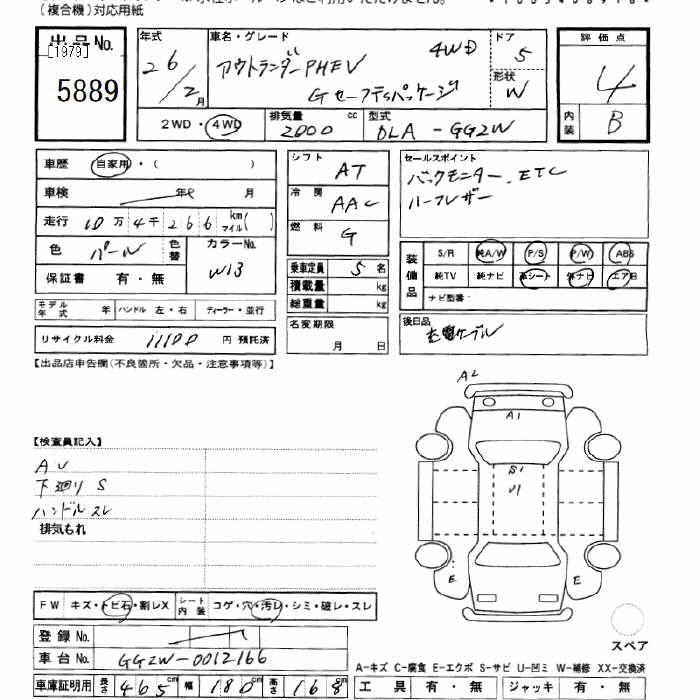 (複合機)対応用紙
出品No.
[1979]
5889
年式
26/2月
車名・グレード
アウトランダーPHEV
4WD
Gセーフティパッケージ
ドア
5
形状
W
評価点
4
内装
B
2WD・4WD
排気量
2000 cc
型式
DLA-GG2W
車歴 自家用・( )
車検 年 月
走行 10万4千266 km マイル( )
色 パール 色替
カラーNo.
W13
保証書 有・無
モデル年式 年 ハンドル 左・右 ディーラー・並行
リサイクル料金 11100 円 預託済
シフト
AT
冷房
AAC
燃料
G
乗車定員 5 名
積載量 kg
総重量 kg
名変期限
月 日
セールスポイント
バックモニター.ETC
ハーフレザー
装備品
S/R 純A/W P/S P/W ABS
純TV 純ナビ 革シート 外ナビ エアB
ナビ型番:
後日品
充電ケーブル
【出品店申告欄(不良箇所・欠品・注意事項等)】
【検査員記入】
AU
下廻りS
ハンドルスレ
排気もれ
A2
A1
S1
U1
E
E
FW キズ・トビ石・割レX シート内装 コゲ・穴・汚レ・シミ・破レ・スレ
登録No.
車台No. GG2W-0012166
車庫証明用 長さ 465 cm 幅 180 cm 高さ 168 cm
スペア
A-キズ C-腐食 E-エクボ S-サビ U-凹ミ W-補修 XX-交換済
工具 有・無 ジャッキ 有・無